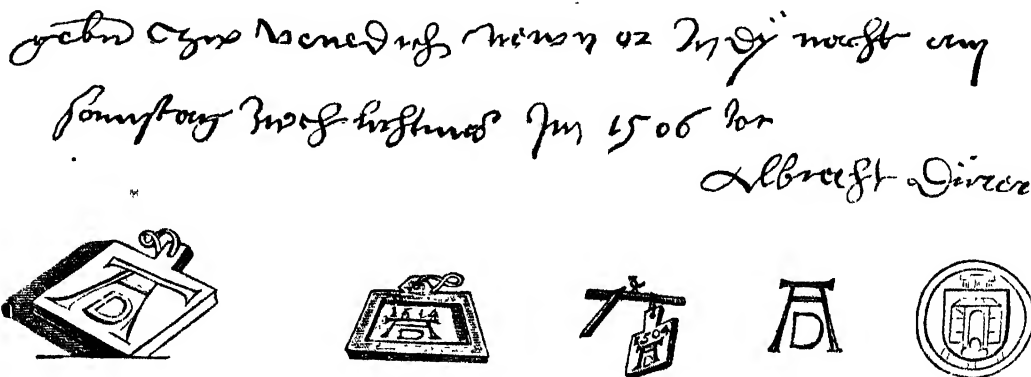 gebn Czw Venedich newn vr In dÿ nacht am
samstag noch lichtmes Im 1506 Jor
Albrecht Dürer
AD
1514
AD
1504
AD
AD